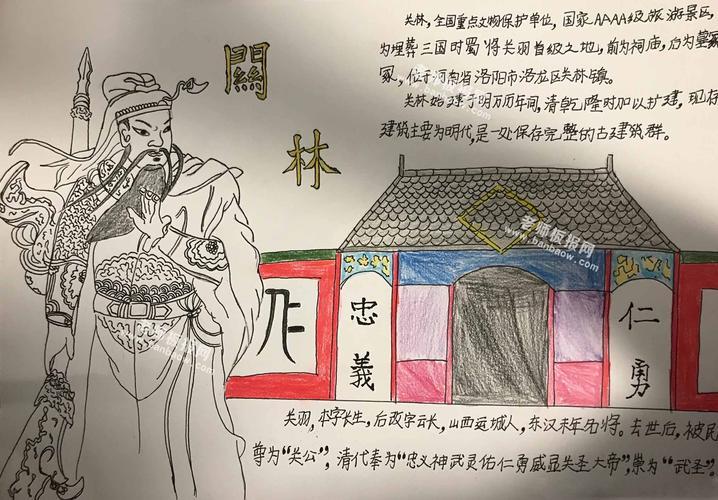 關
林
关林,全国重点文物保护单位,国家AAAA级旅游景区,
为埋葬三国时蜀将关羽首级之地,前为祠庙,后为墓冢
冢,位于河南省洛阳市洛龙区关林镇。
关林始建于明万历年间,清乾隆时加以扩建,现存
建筑主要为明代,是一处保存完整的古建筑群。
忠義
仁勇
关羽,本字长生,后改字云长,山西运城人,东汉末年名将。去世后,被民
尊为“关公”,清代奉为“忠义神武灵佑仁勇威显关圣大帝”,崇为“武圣”。
老师板报网
www.banbaow.com
老师板报网
www.banbaow.com